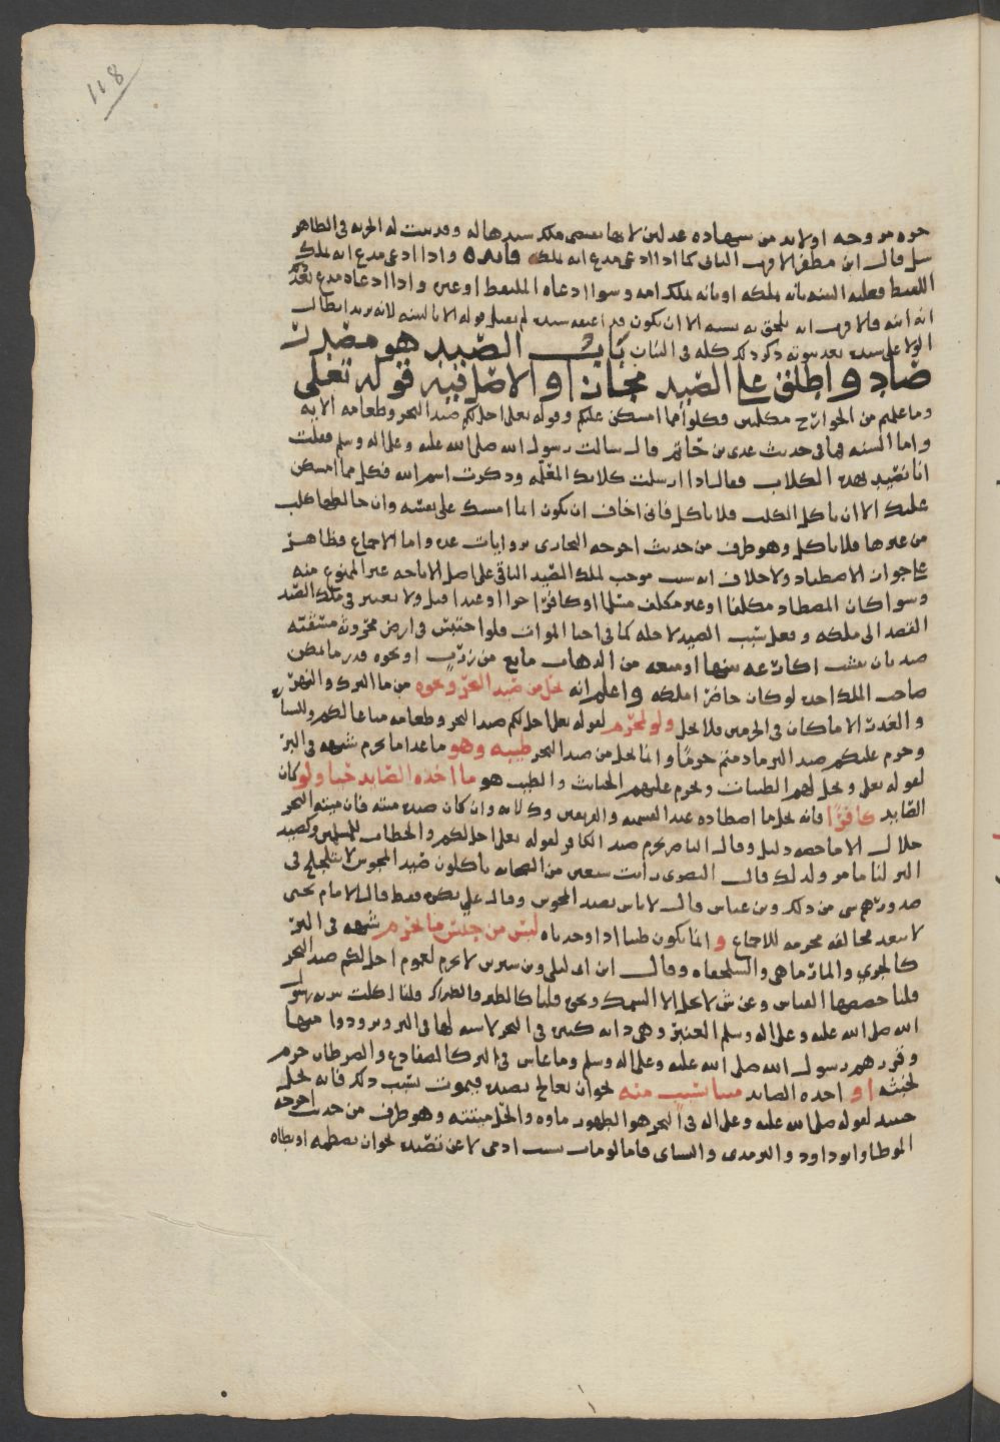 118
حره مزوجه اولابد من شهاده عدلين لانها تقتضى ملك سيدها له وقد ثبت له الحريه فى الظاهر
بل قال ابن مظفر الاقرب الثانى كما اذا ادعى مدع انه ملكه فايده واذا ادعى مدع انه ملك
اللقيط فعليه البينه بانه ملكه اوبانه تملكه امه وسوا ادعاه الملتقط اوغيره واذا ادعاه مدع بعد
انه ابنه فالاقرب انه يلحق به نسبه الا ان يكون قد اعتقه سيده لم يقبل قوله الا بالبينه لانه يريد ابطال
الولا على سيده بعد ثبوته ذكر ذلك كله فى البيان باب الصيد هو مصدر
صاد واطلق على الصيد مجازا والاصل فيه قوله تعلى
وما علمتم من الجوارح مكلبين فكلوا مما امسكن عليكم وقوله تعلى احل لكم صيد البحر وطعامه الايه
واما السنه فما فى حديث عدى بن حاتم قال سالت رسول الله صلى الله عليه وعلى اله وسلم فقلت
انا نصيد بهذه الكلاب فقال اذا ارسلت كلابك المعلمه وذكرت اسم الله فكل مما امسكن
عليك الا ان ياكل الكلب فلا تاكل فانى اخاف ان يكون انما امسك على نفسه وان خالطها كلب
من غيرها فلا تاكل وهو طرف من حديث اخرجه البخارى بروايات عده واما الاجماع فظاهر
على جواز الاصطياد ولا خلاف انه سبب موجب لملك الصيد الباقى على اصل الاباحه غير الممنوع منه
وسوا كان المصطاد مكلفا اوغير مكلف مسلما او كافرا حرا او عبدا قيل ولا يعتبر فى ملك الصيد
القصد الى ملكه وفعل سبب الصيد لاجله كما فى احيا الموات فلو احتبس فى ارض محروثه مسقيه
صيد بان نشب اكارعه بها او منعه من الذهاب مانع من زرب او نحوه قدر ما يمكن
صاحب الملك اخذه لو كان حاضرا ملكه واعلم انه يحل من صيد البحر ونحوه من ما البرك والنهر
والغدر الا ما كان فى الحرمين فلا يحل ولو لمحرم لقوله تعلى احل لكم صيد البحر وطعامه متاعا لكم وللسياره
وحرم عليكم صيد البر ما دمتم حرما وانما يحل من صيد البحر طيبه وهو ما عدا ما يحرم شبهه فى البر
لقوله تعلى ويحل لهم الطيبات ويحرم عليهم الخبايث والطيب هو ما اخذه الصايد حيا ولو كان
الصايد كافرا فانه يحل ما اصطاده عند القسميه والفريقين وكلابه وان كان صيده ميته فان ميته البحر
حلال الا ما خصه دليل وقال الناصر يحرم صيد الكافر لقوله تعلى احل لكم والخطاب للمسلمين وكصيد
البر لنا ما مر ولذلك قال البصرى رايت سبعين من الصحابه ياكلون صيد المجوس لا يتلجلج فى
صدورهم شى من ذلك وعن عباس قال لا باس بصيد المجوس وقال على يكره فقط قال الامام يحيى
لا يبعد مخالفه محرمه للاجماع وانما يكون طيبا اذا وجدناه ليس من جنس ما يحرم شبهه فى البر
كالجرى والمارماهى والسلحفاه وقال ابن ابى ليلى وبن سيرين لا يحرم لعموم احل لكم صيد البحر
قلنا خصصها القياس وعن ش لا يحل الا السمك وعن ح قلنا كالطير قلنا اكلت سريه رسول
الله صلى الله عليه وعلى اله وسلم العنبر وهى دابه كبيره فى البحر لا شبه لها فى البر وتزودوا منها
وقررهم رسول الله صلى الله عليه وعلى اله وسلم وما عاش فى البر كالضفادع والسرطان حرم
لخبثه او اخذه الصايد ميتا بسبب منه نحو ان يعالج تصيده فيموت بسبب ذلك فانه يحل
حينئذ لقوله صلى الله عليه وعلى اله فى البحر هو الطهور ماوه والحل ميتته وهو طرف من حديث اخرجه
الموطا وابو داود والترمذى والنساى فاما لو مات بسبب ادمى لا عن تصيد نحو ان يصطدمه او يطاه